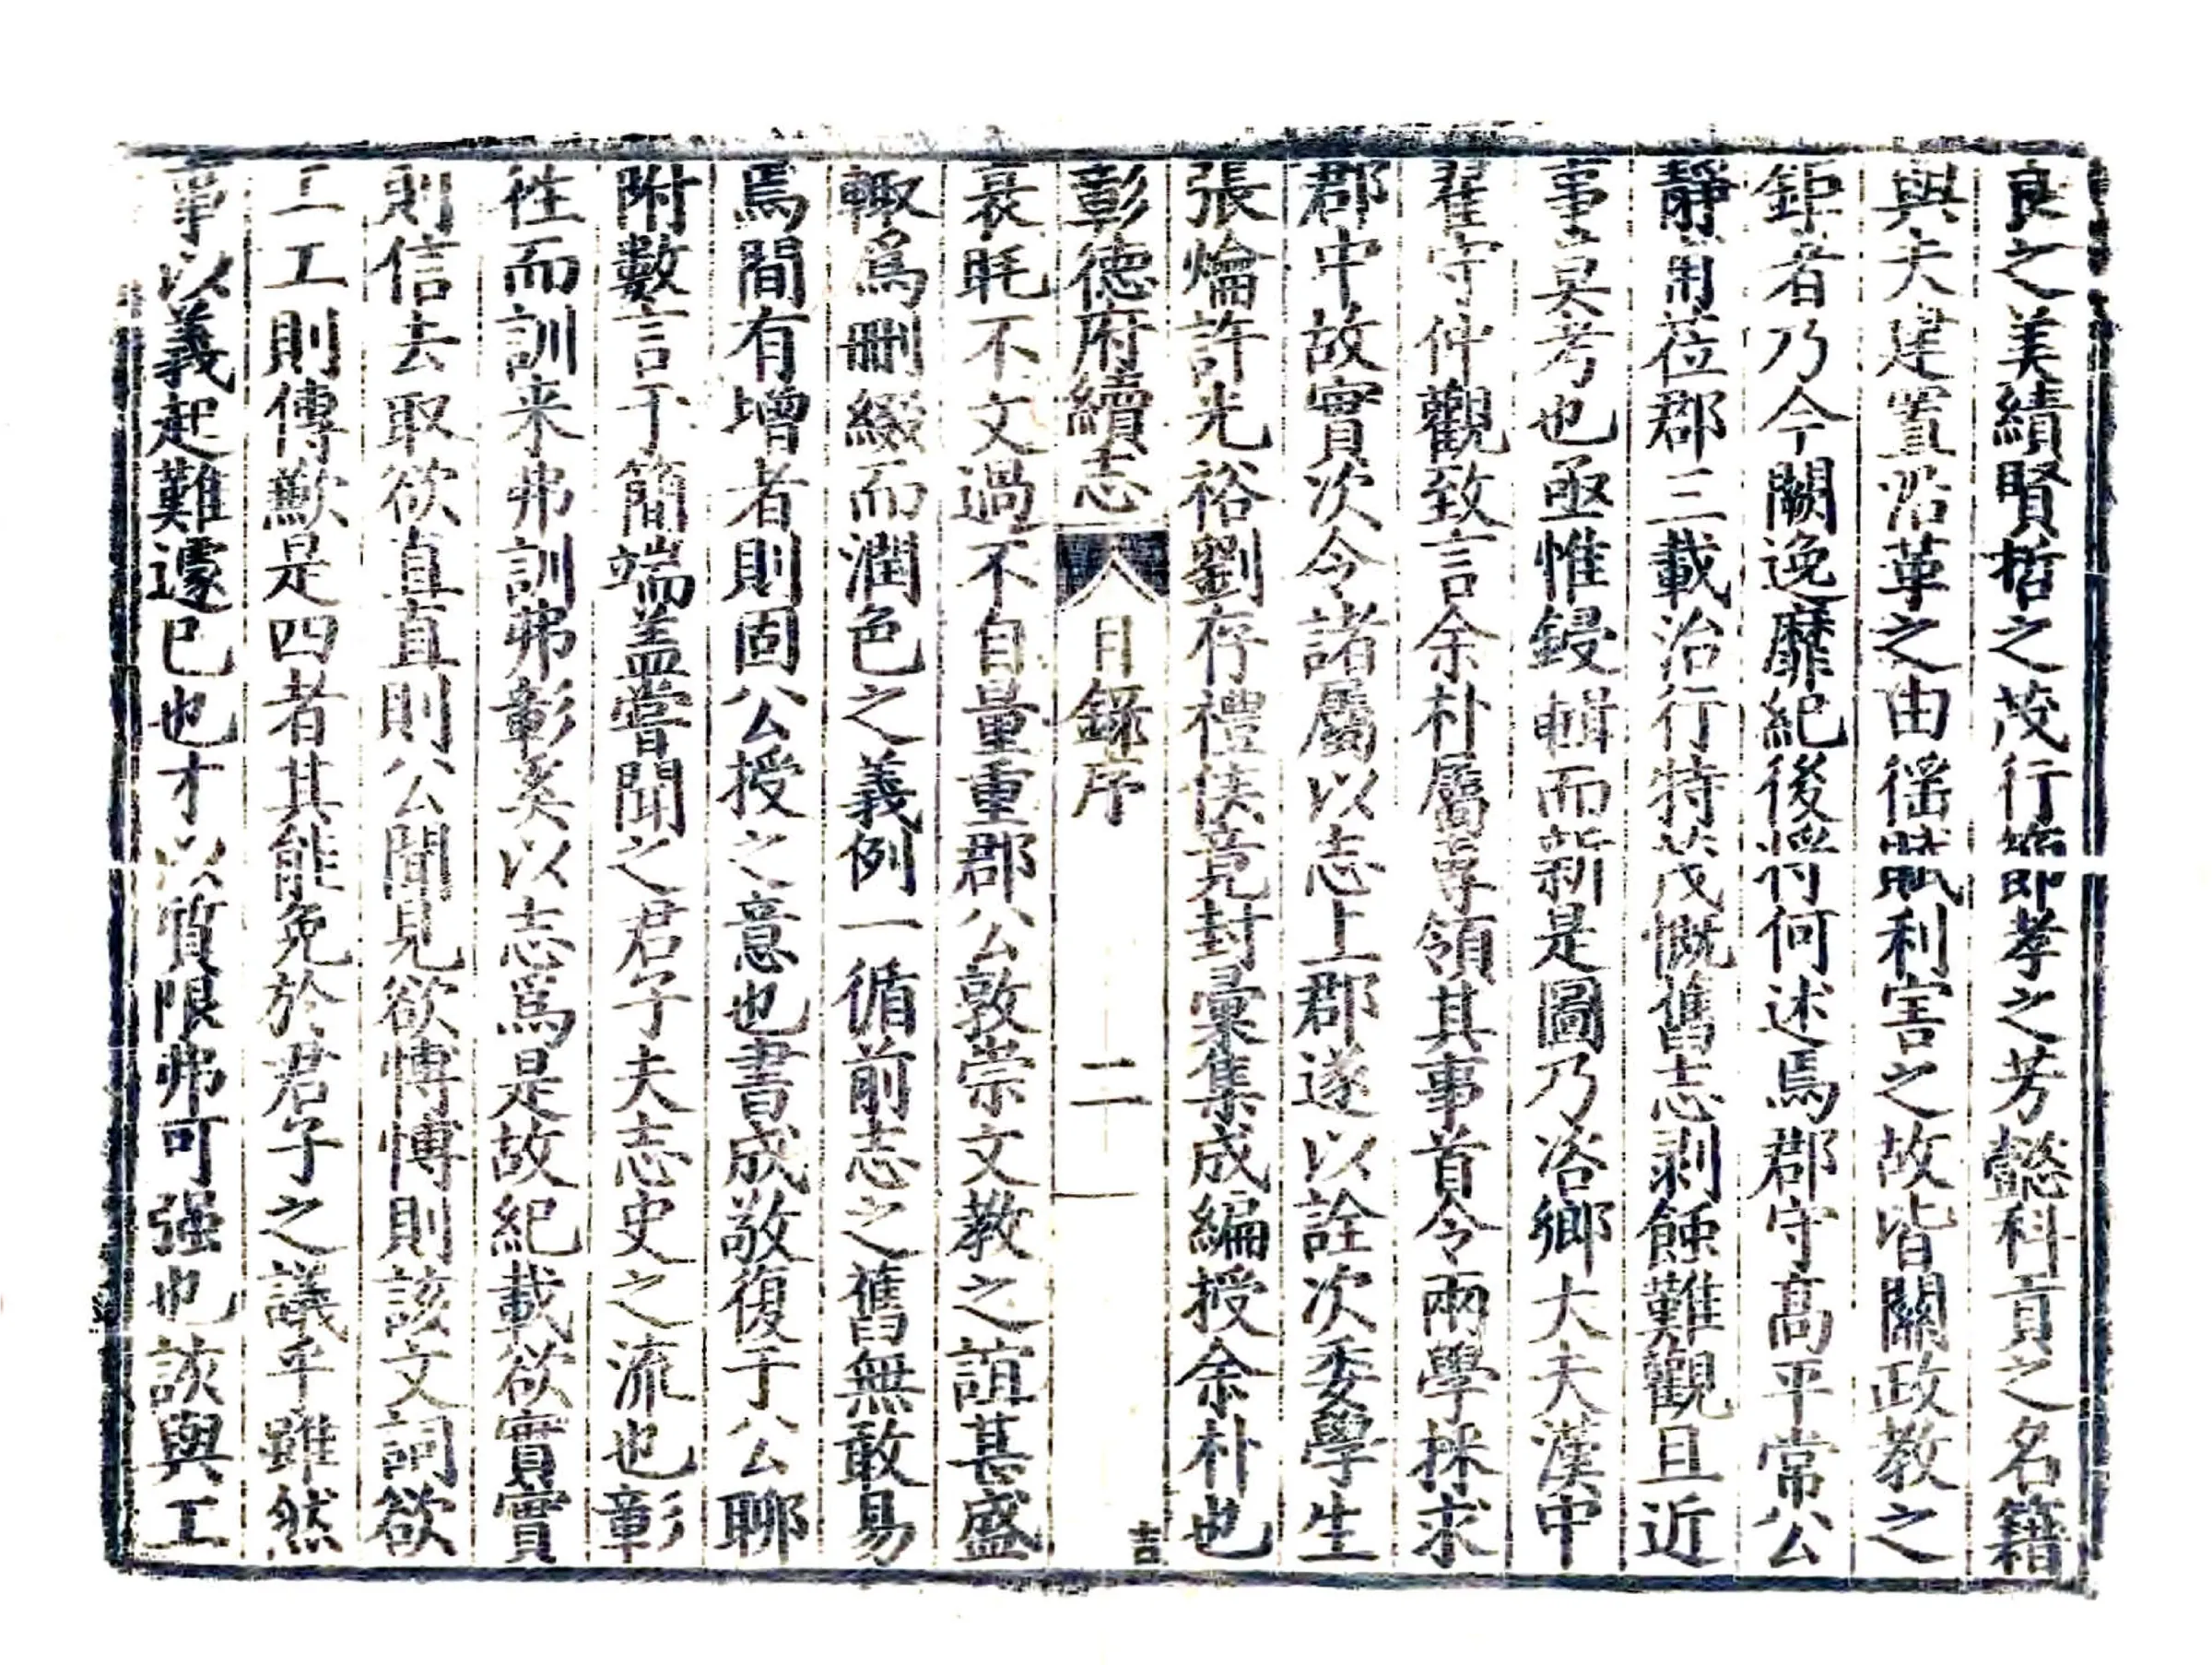 良之美績賢哲之茂行節孝之芳懿科貢之名籍
與夫建置沿革之由徭賦利害之故皆關政教之
鉅者乃今闕逸靡紀後將何述焉郡守高平常公
靜甫莅郡三載治行特茂慨舊志剥蝕難觀且近
事吴考也亟惟鋟輯而新是圖乃咨鄉大夫漢中
翟守仲觀致言余朴屬專領其事首令兩學採求
郡中故實次令諸屬以志上郡遂以詮次委學生
張爚許光裕劉存禮侯竟封彚集成編授余朴也
彰德府續志 目録序 二 吉
衰眊不文過不自量重郡公敦崇文教之誼甚盛
輙爲刪綴而潤色之義例一循前志之舊無敢易
焉間有增者則固公授之意也書成敬復于公聊
附數言于簡端盖嘗聞之君子夫志史之流也彰
徃而訓来弗訓弗彰奚以志爲是故紀載欲實實
則信去取欲直直則公聞見欲愽愽則該文詞欲
工工則傳歉是四者其能免於君子之議乎雖然
事以義起難遽已也才以質限弗可强也該與工